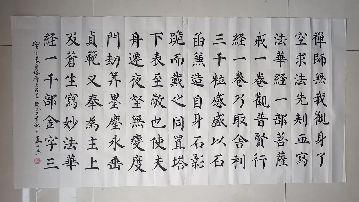 禪師無我觀身了
空求法先刺血寫
法華經一部菩薩
戒一卷觀普賢行
經一卷乃取舍利
三千粒盛盛以石
函兼造自身石影
跪而戴之同置塔
下表至敬也使夫
舟遷夜壑無變度
門劫筭墨塵永垂
貞範又奉為主上
及蒼生寫妙法華
經一千部金字三